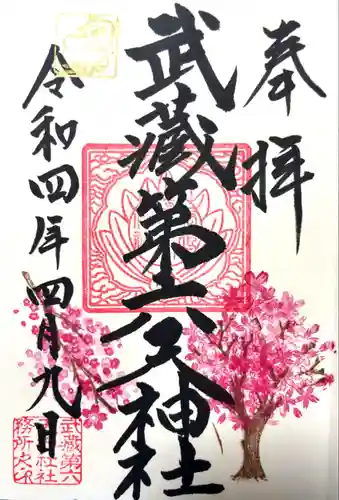 奉拝
武蔵第六天神社
令和四年四月九日
武蔵第六
天神社
務所之印